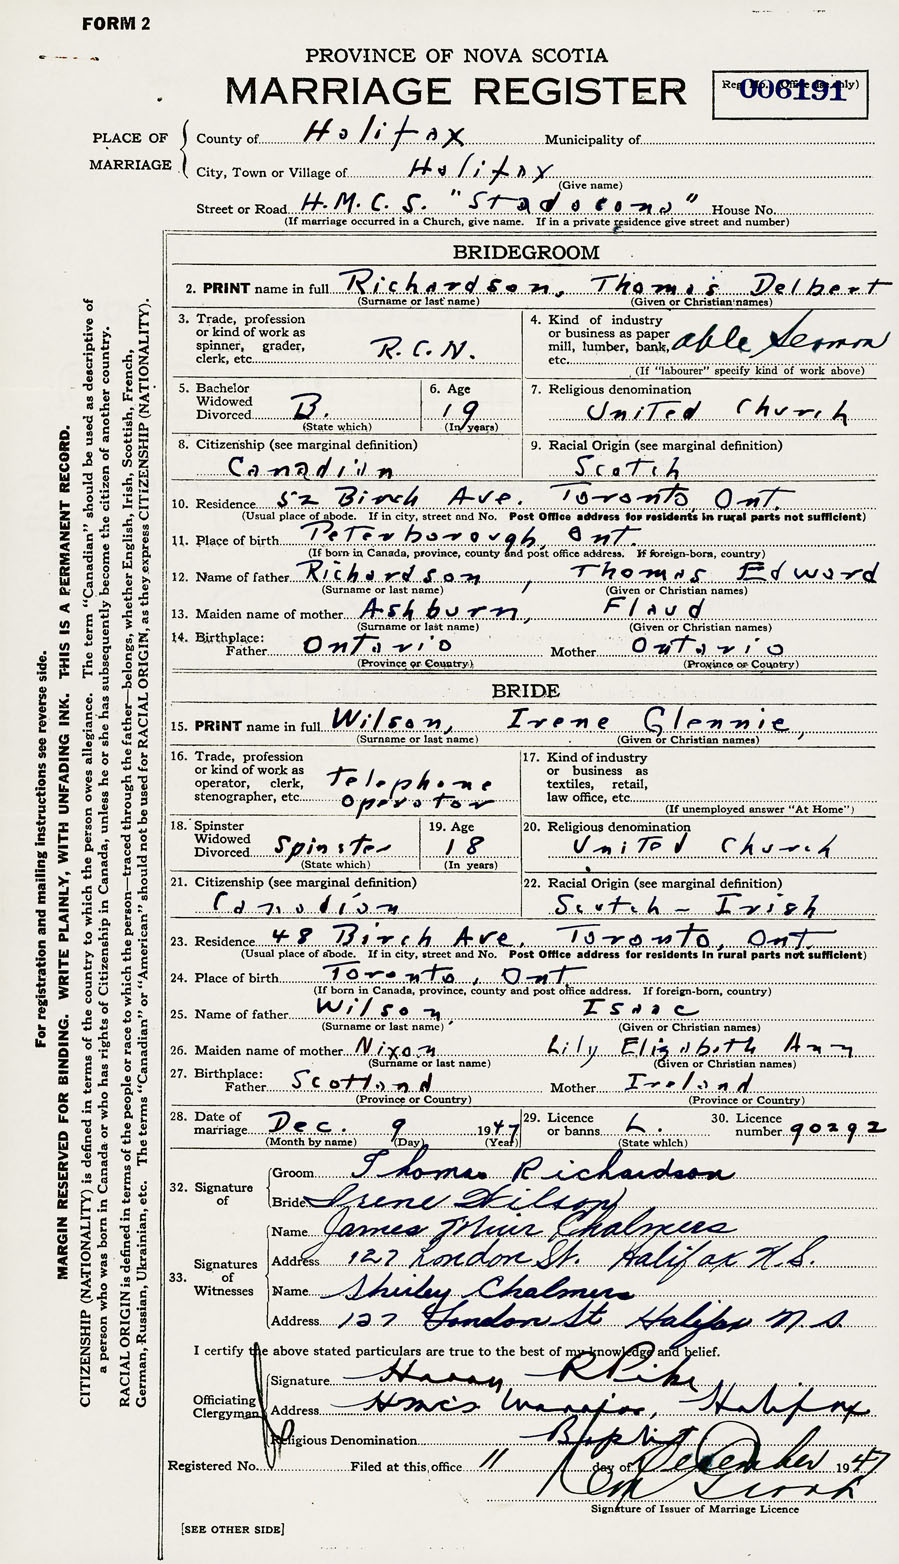 FORM 2
PROVINCE OF NOVA SCOTIA
MARRIAGE REGISTER
Reg. No. (Office use only)
006191
PLACE OF MARRIAGE
County of Halifax Municipality of
City, Town or Village of Halifax
(Give name)
Street or Road H.M.C.S. "Stadacona" House No.
(If marriage occurred in a Church, give name. If in a private residence give street and number)
BRIDEGROOM
2. PRINT name in full Richardson, Thomas Delbert
(Surname or last name) (Given or Christian names)
3. Trade, profession or kind of work as spinner, grader, clerk, etc. R.C.N.
4. Kind of industry or business as paper mill, lumber, bank, etc. able Seaman
(If "labourer" specify kind of work above)
5. Bachelor Widowed Divorced B.
(State which)
6. Age 19
(In years)
7. Religious denomination
United Church
8. Citizenship (see marginal definition)
Canadian
9. Racial Origin (see marginal definition)
Scotch
10. Residence 52 Birch Ave. Toronto, Ont.
(Usual place of abode. If in city, street and No. Post Office address for residents in rural parts not sufficient)
11. Place of birth Peterborough, Ont.
(If born in Canada, province, county and post office address. If foreign-born, country)
12. Name of father Richardson, Thomas Edward
(Surname or last name) (Given or Christian names)
13. Maiden name of mother Ashburn, Flaud
(Surname or last name) (Given or Christian names)
14. Birthplace:
Father Ontario Mother Ontario
(Province or Country) (Province or Country)
BRIDE
15. PRINT name in full Wilson, Irene Glennie,
(Surname or last name) (Given or Christian names)
16. Trade, profession or kind of work as operator, clerk, stenographer, etc. telephone operator
17. Kind of industry or business as textiles, retail, law office, etc.
(If unemployed answer "At Home")
18. Spinster Widowed Divorced Spinster
(State which)
19. Age 18
(In years)
20. Religious denomination
United Church
21. Citizenship (see marginal definition)
Canadian
22. Racial Origin (see marginal definition)
Scotch - Irish
23. Residence 48 Birch Ave, Toronto, Ont.
(Usual place of abode. If in city, street and No. Post Office address for residents in rural parts not sufficient)
24. Place of birth Toronto, Ont.
(If born in Canada, province, county and post office address. If foreign-born, country)
25. Name of father Wilson, Isaac
(Surname or last name) (Given or Christian names)
26. Maiden name of mother Nixon Lily Elizabeth Ann
(Surname or last name) (Given or Christian names)
27. Birthplace:
Father Scotland Mother Ireland
(Province or Country) (Province or Country)
28. Date of marriage Dec. 9 1947
(Month by name) (Day) (Year)
29. Licence or banns L.
(State which)
30. Licence number 90292
32. Signature of
Groom Thomas Richardson
Bride Irene Wilson
33. Signatures of Witnesses
Name James Muir Chalmers
Address 127 London St. Halifax N.S.
Name Shirley Chalmers
Address 127 London St Halifax N.S.
I certify the above stated particulars are true to the best of my knowledge and belief.
Officiating Clergyman
Signature Harry R Pike
Address HMCS Halifax
Religious Denomination Baptist
Registered No. Filed at this office 11 day of December 1947
Signature of Issuer of Marriage Licence
[SEE OTHER SIDE]
For registration and mailing instructions see reverse side.
MARGIN RESERVED FOR BINDING. WRITE PLAINLY, WITH UNFADING INK. THIS IS A PERMANENT RECORD.
CITIZENSHIP (NATIONALITY) is defined in terms of the country to which the person owes allegiance. The term "Canadian" should be used as descriptive of
a person who was born in Canada or who has rights of Citizenship in Canada, unless he or she has subsequently become the citizen of another country.
RACIAL ORIGIN is defined in terms of the people or race to which the person—traced through the father—belongs, whether English, Irish, Scottish, French,
German, Russian, Ukrainian, etc. The terms "Canadian" or "American" should not be used for RACIAL ORIGIN, as they express CITIZENSHIP (NATIONALITY).